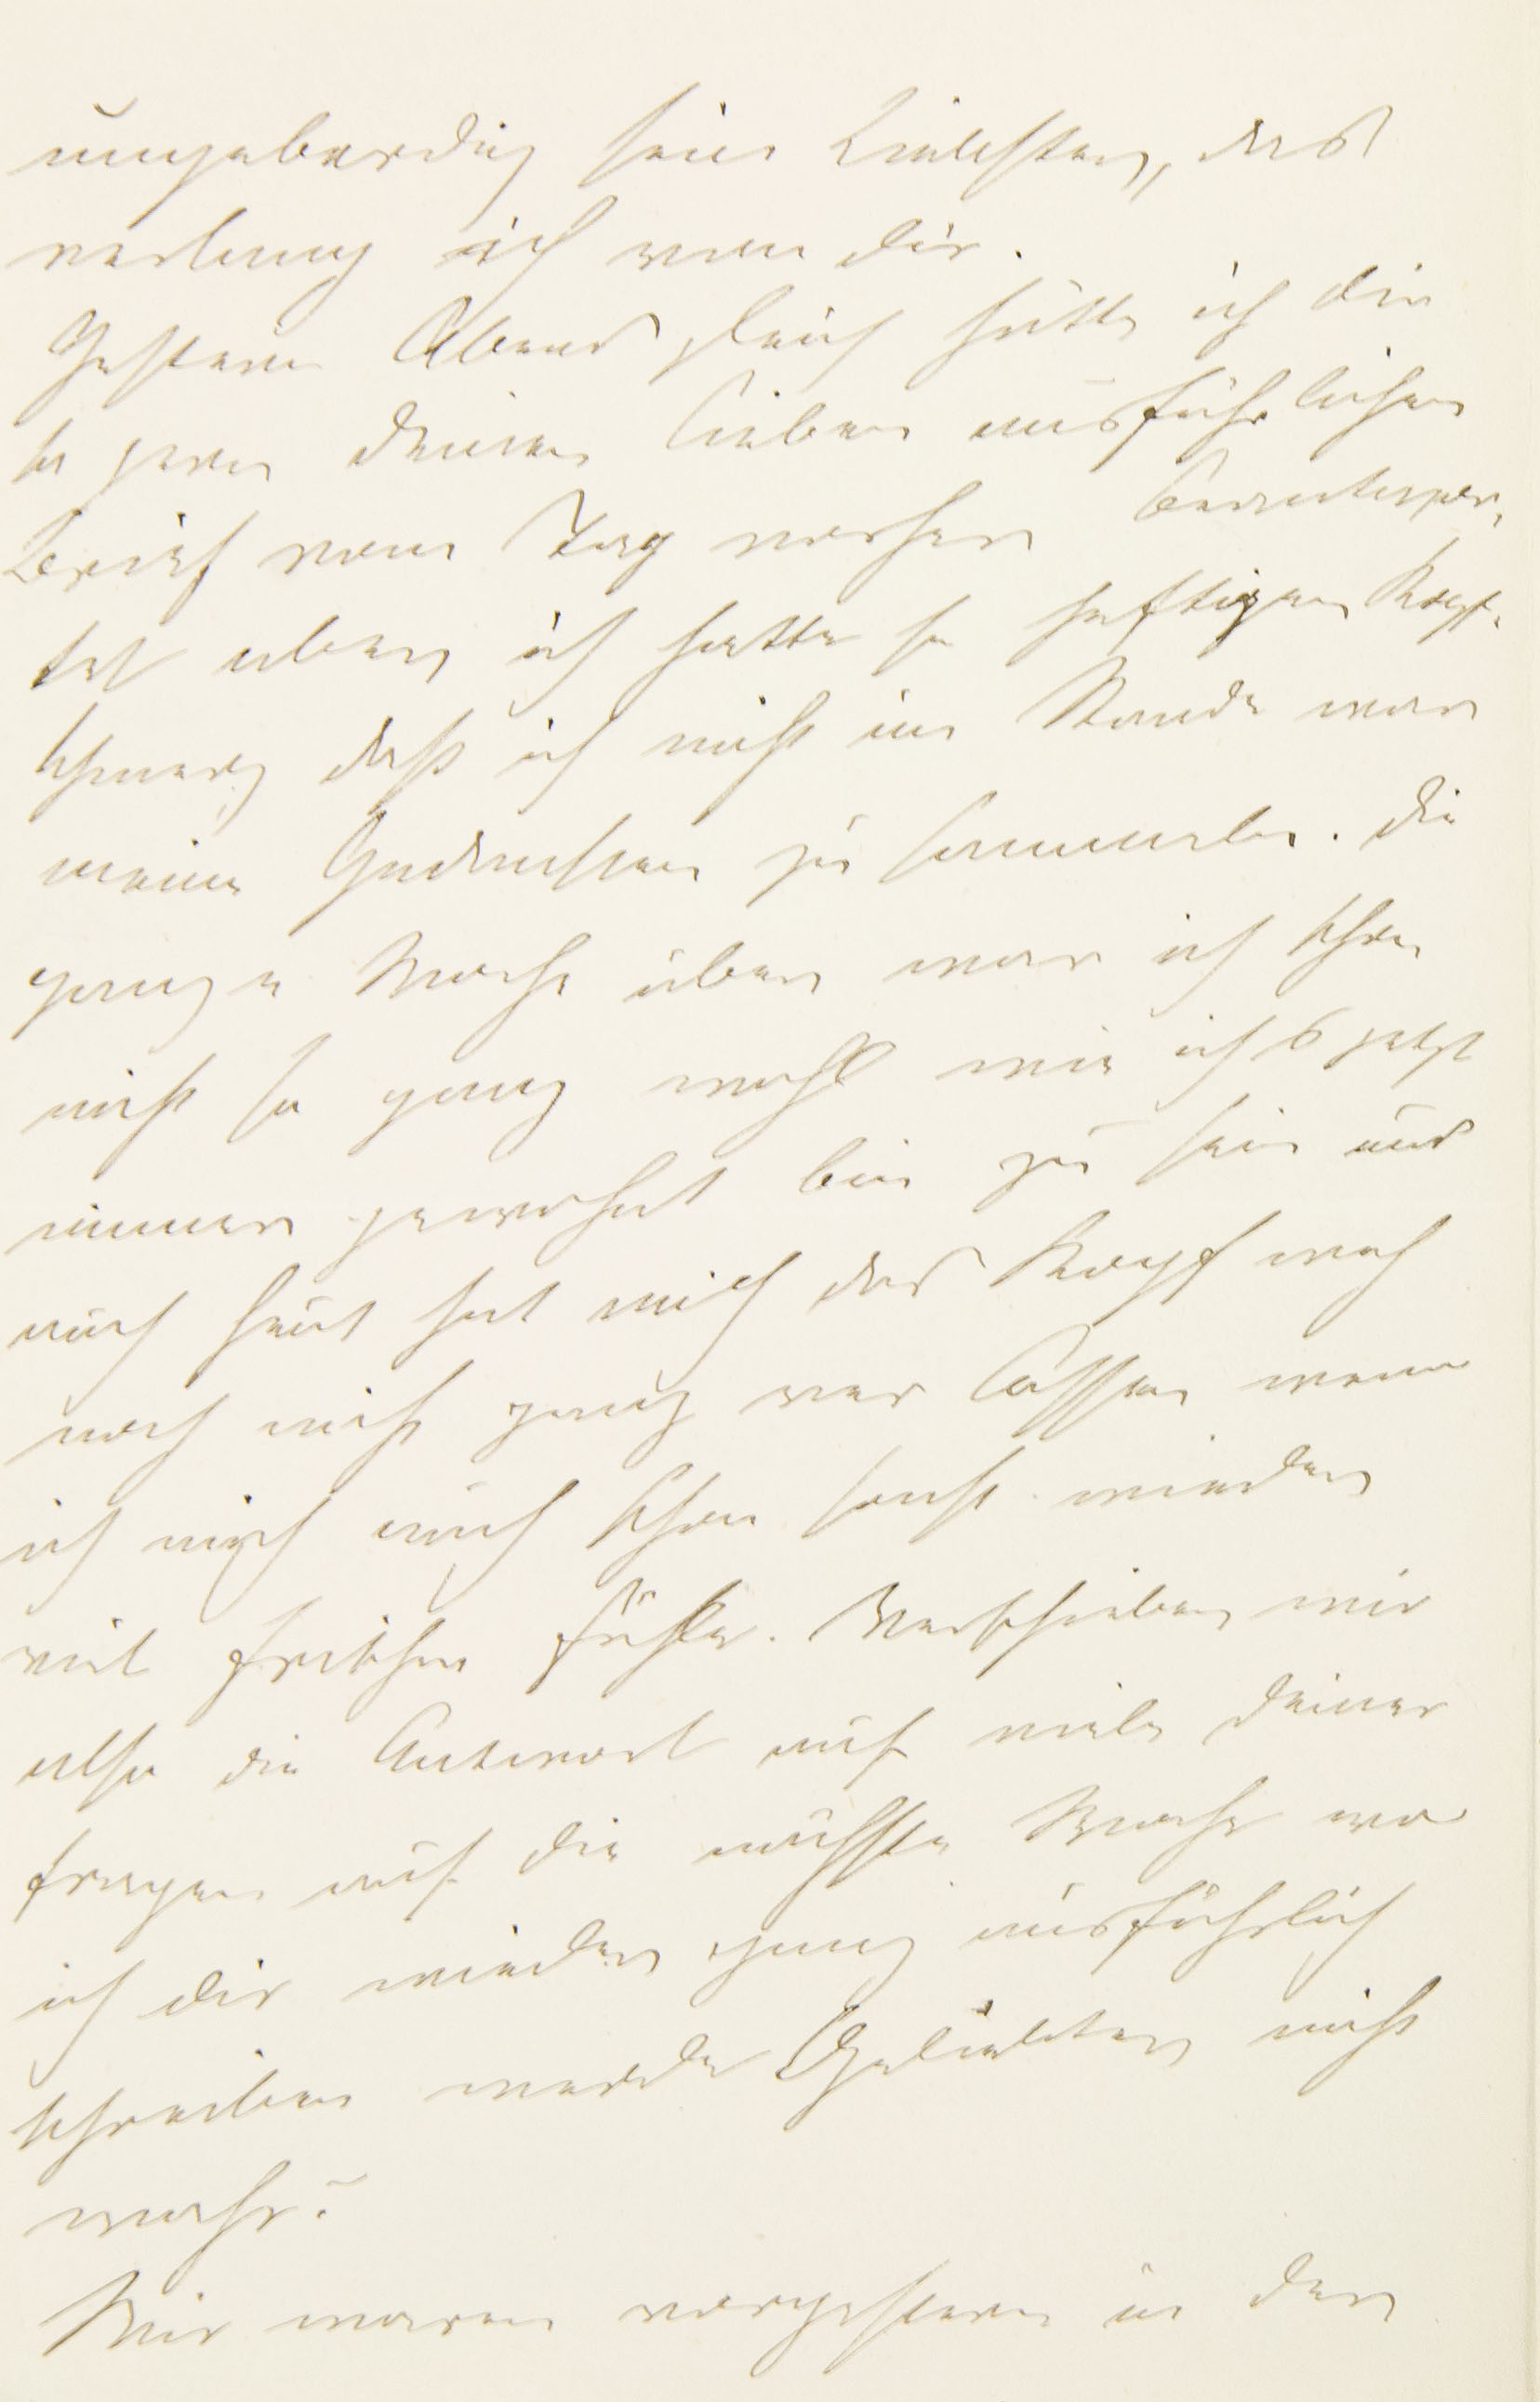 ungeberdig sein Liebster, das
verlang ich von dir.
Gestern Abend gleich hätte ich dir
so gern deinen lieben ausführlichen
Brief vom Tag vorher beantwor-
tet aber ich hatte so heftigen Kopf-
schmerz daß ich nicht im Stande war
meine Gedanken zu sammeln. Die
ganze Woche über war ich schon
nicht so ganz wohl wie ichs jetzt
immer gewohnt bin zu sein und
auch heut hat mich das Kopfweh
noch nicht ganz verlassen wenn
ich mich auch schon sonst wieder
viel frischer fühle. Verschieben wir
also die Antwort auf viele deiner
Fragen auf die nächste Woche wo
ich dir wieder ganz ausführlich
schreiben werde Geliebter, nicht
wahr?
Wir waren vorgestern in der